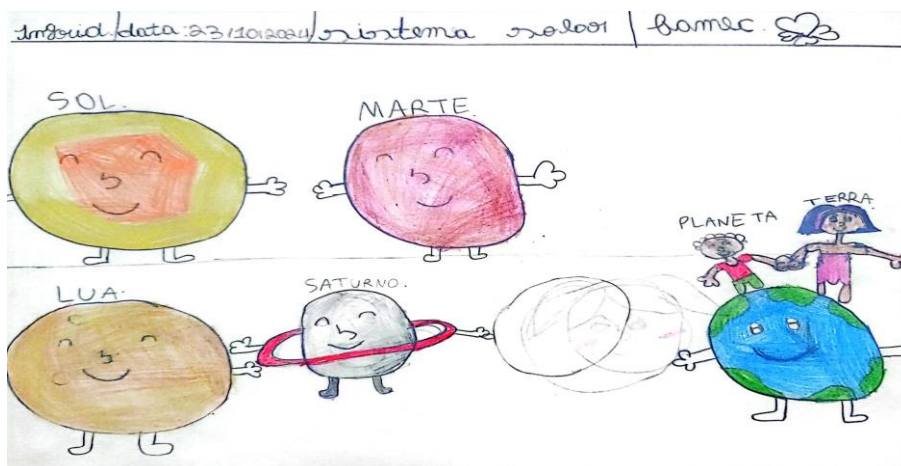 Ingrid/data: 23/10/2024/sistema solar/
SOL.
MARTE.
PLANETA TERRA.
LUA.
SATURNO.